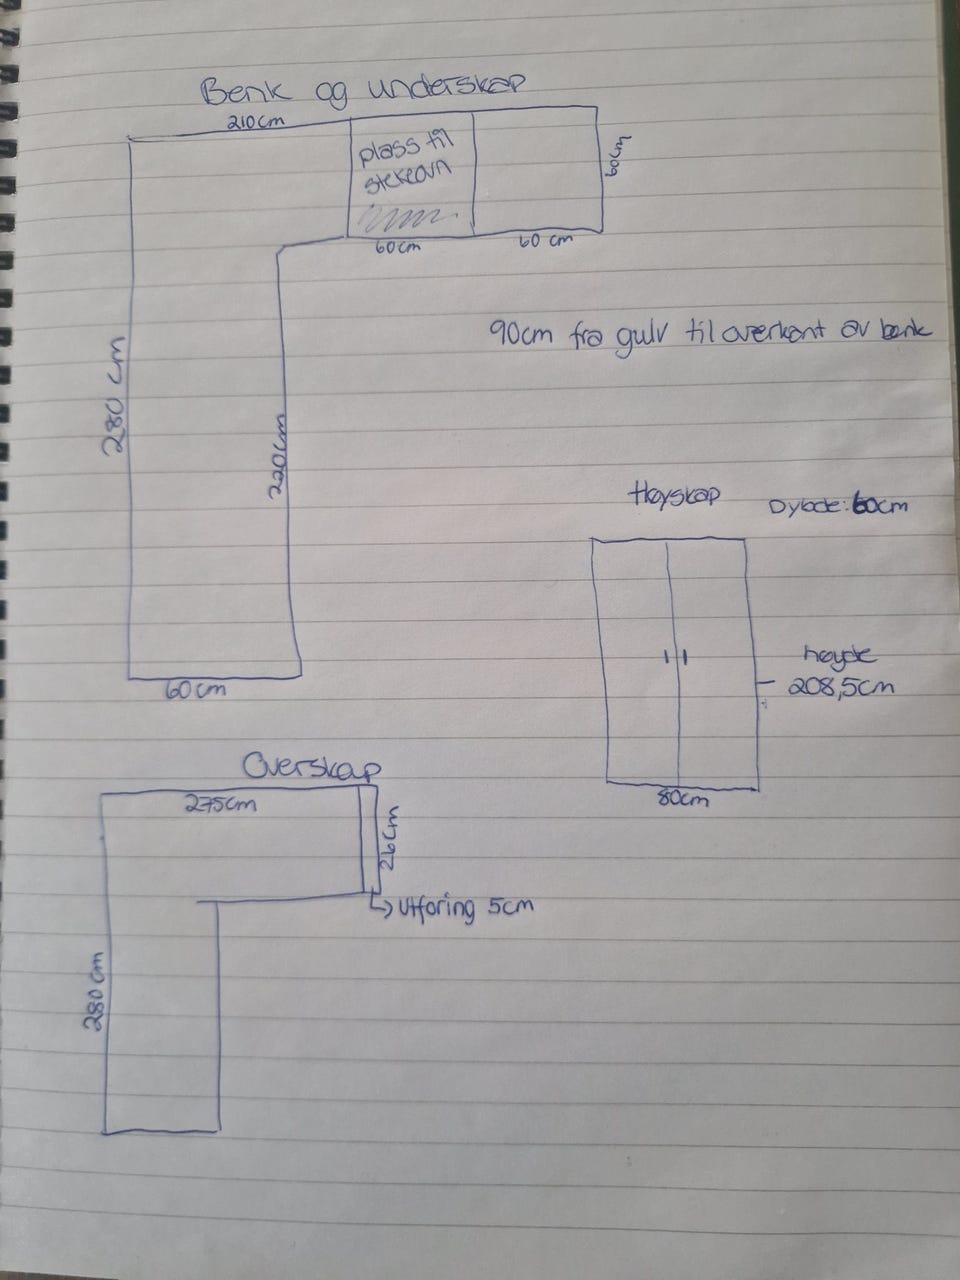 Benk og underskap
210cm
plass til
stekeovn
60cm
60cm
60 cm
280 cm
220cm
60cm
90cm fra gulv til overkant av benk
Høyskap
Dybde: 60cm
høyde
208,5cm
80cm
Overskap
275cm
26cm
Utforing 5cm
280cm